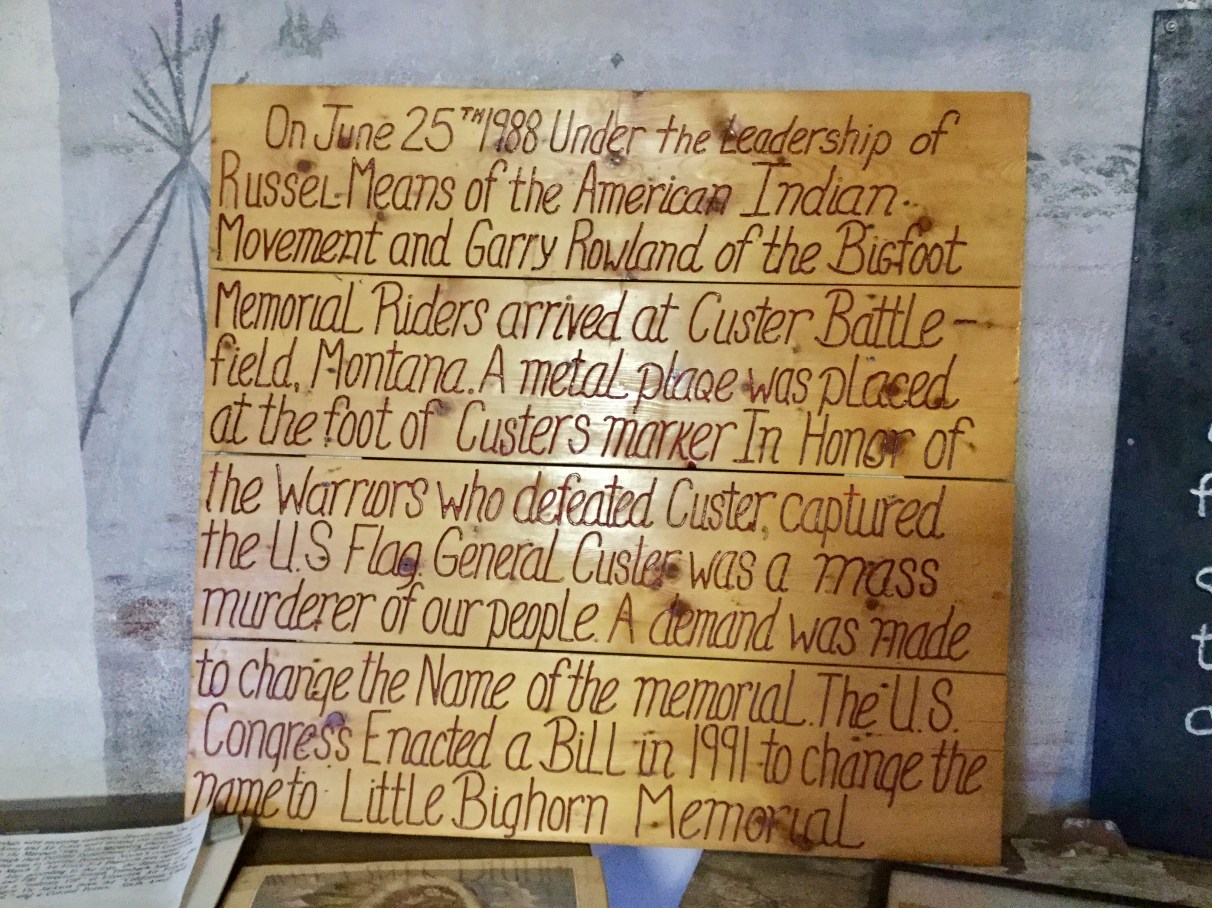 On June 25TH 1988 Under the Leadership of
Russel Means of the American Indian
Movement and Garry Rowland of the Bigfoot
Memorial Riders arrived at Custer Battle-
field, Montana. A metal plaqe was placed
at the foot of Custers marker In Honor of
the Warriors who defeated Custer, captured
the U.S Flag. General Custer was a mass
murderer of our people. A demand was made
to change the Name of the memorial. The U.S.
Congress Enacted a Bill in 1991 to change the
name to Little Bighorn Memorial